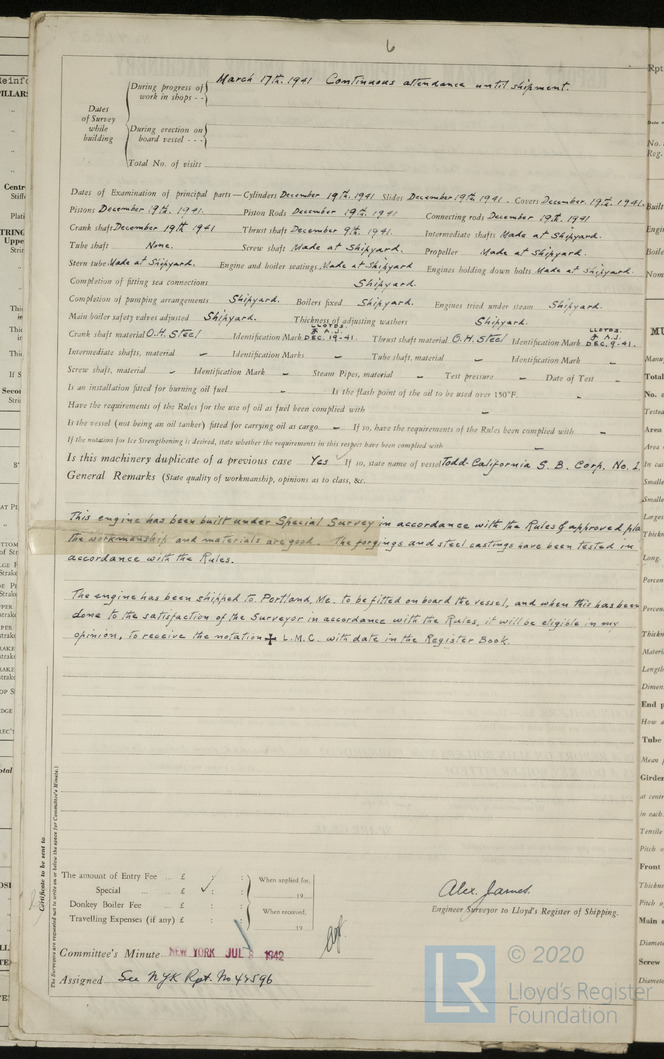 6
During progress of work in shops - - March 17th. 1941 Continuous attendance until shipment.
Dates of Survey while building
During erection on board vessel - - -
Total No. of visits
Dates of Examination of principal parts—Cylinders December 19th. 1941 Slides December 19th. 1941. Covers December. 19th. 1941.
Pistons December 19th. 1941. Piston Rods December 19th. 1941 Connecting rods December 19th. 1941
Crank shaft December 19th 1941 Thrust shaft December 9th. 1941. Intermediate shafts Made at Shipyard.
Tube shaft None. Screw shaft Made at Shipyard. Propeller Made at Shipyard.
Stern tube Made at Shipyard. Engine and boiler seatings Made at Shipyard Engines holding down bolts Made at shipyard.
Completion of fitting sea connections Shipyard.
Completion of pumping arrangements Shipyard. Boilers fixed Shipyard. Engines tried under steam Shipyard.
Main boiler safety valves adjusted Shipyard. Thickness of adjusting washers Shipyard.
Crank shaft material O.H. Steel Identification Mark LLOYDS. A.J. DEC. 19-41. Thrust shaft material O.H. Steel Identification Mark LLOYDS. A.J. DEC. 9-41.
Intermediate shafts, material - Identification Marks - Tube shaft, material - Identification Mark -
Screw shaft, material - Identification Mark - Steam Pipes, material - Test pressure - Date of Test -
Is an installation fitted for burning oil fuel - Is the flash point of the oil to be used over 150°F. -
Have the requirements of the Rules for the use of oil as fuel been complied with -
Is the vessel (not being an oil tanker) fitted for carrying oil as cargo - If so, have the requirements of the Rules been complied with -
If the notation for Ice Strengthening is desired, state whether the requirements in this respect have been complied with -
Is this machinery duplicate of a previous case Yes If so, state name of vessel Todd-California S. B. Corp. No. 1.
General Remarks (State quality of workmanship, opinions as to class, &c.
This engine has been built under Special Survey in accordance with the Rules & approved pla
the workmanship and materials are good. The forgings and steel castings have been tested in
accordance with the Rules.
The engine has been shipped to Portland, Me. to be fitted on board the vessel, and when this has been
done to the satisfaction of the Surveyor in accordance with the Rules, it will be eligible in my
opinion, to receive the notation ✠ L.M.C. with date in the Register Book.
Certificate to be sent to
(The Surveyors are requested not to write on or below the space for Committee's Minute.)
The amount of Entry Fee ... £ : :
Special ... £ ✓ :
Donkey Boiler Fee ... £ : :
Travelling Expenses (if any) £ : :
When applied for,
19
When received,
19
Alex. James.
Engineer Surveyor to Lloyd's Register of Shipping.
Committee's Minute NEW YORK JUL 1942
Assigned See NYK Rpt. No 43596
© 2020
LR
Lloyd's Register
Foundation